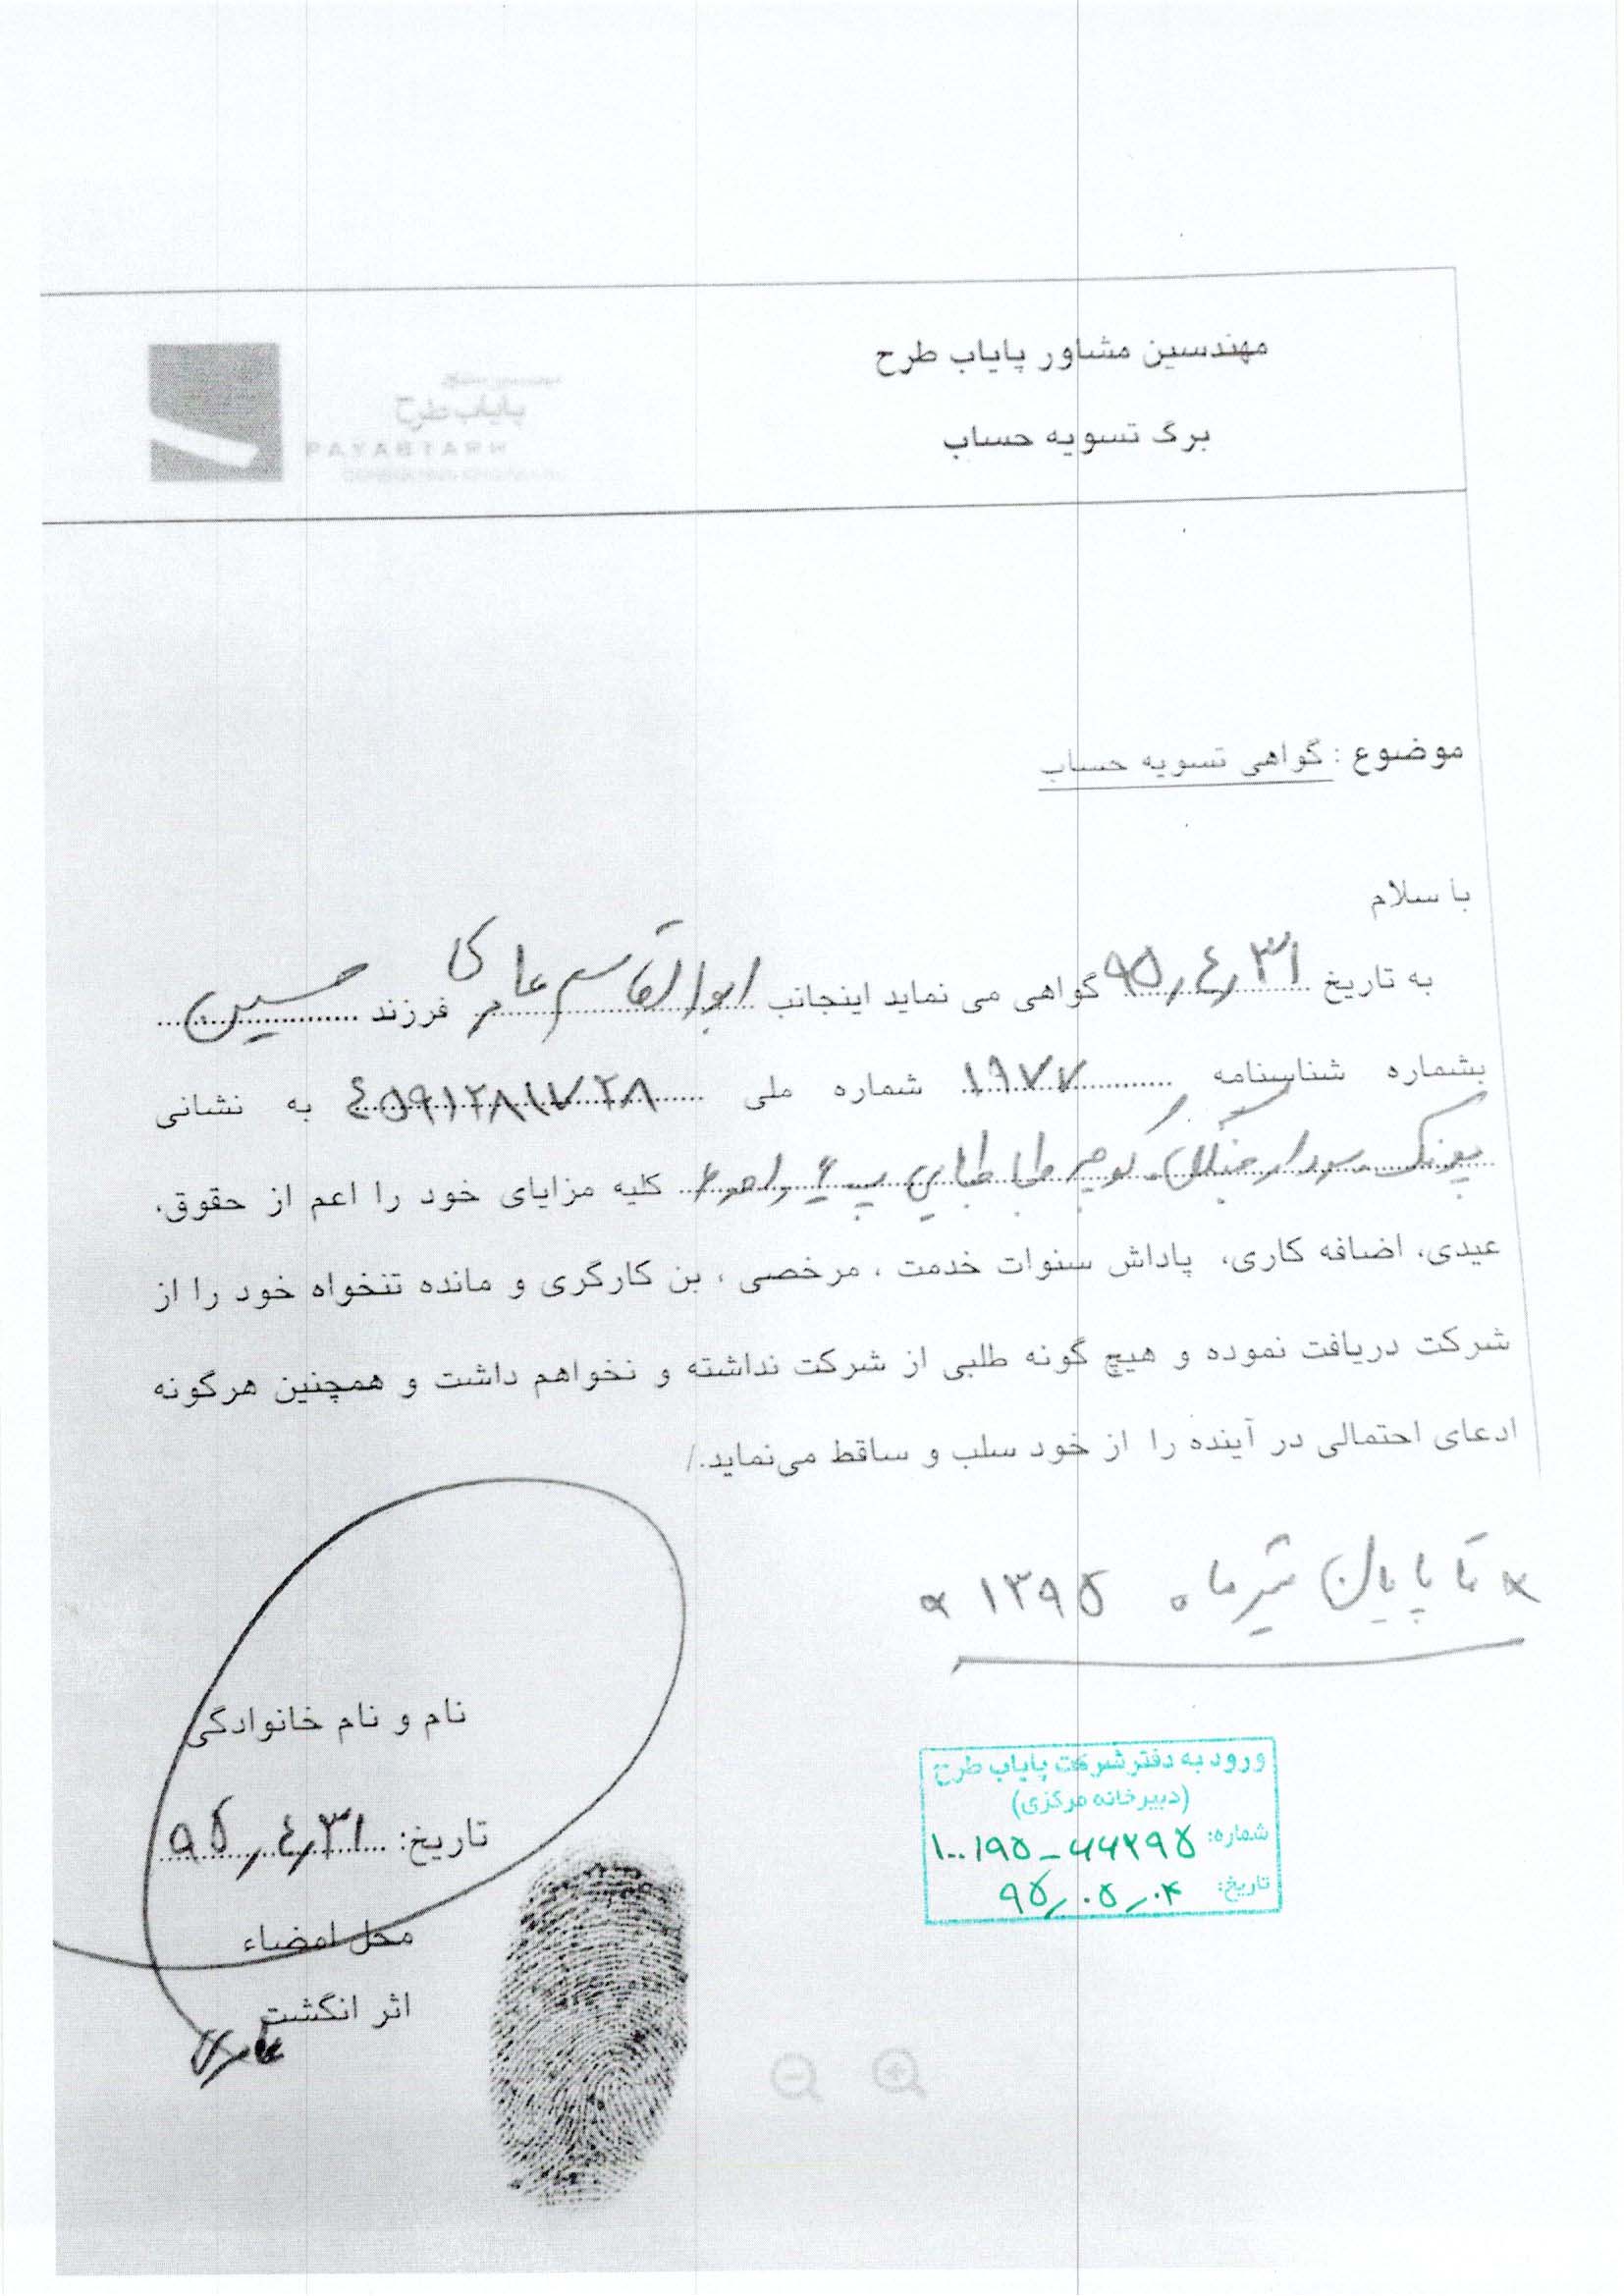 مهندسین مشاور پایاب طرح
برگ تسویه حساب
پایاب طرح
PAYABTARH
موضوع : گواهی تسویه حساب
با سلام
به تاریخ ۹۵٫۴٫۳۱ گواهی می نماید اینجانب ابوالقاسم عامری فرزند حسین
بشماره شناسنامه ۱۹۷۷ شماره ملی ۴۵۹۱۲۸۱۷۲۸ به نشانی
پونک سردار جنگل کوچه طباطبایی پ ۶ واحد ۲ کلیه مزایای خود را اعم از حقوق،
عیدی، اضافه کاری، پاداش سنوات خدمت ، مرخصی ، بن کارگری و مانده تنخواه خود را از
شرکت دریافت نموده و هیچ گونه طلبی از شرکت نداشته و نخواهم داشت و همچنین هرگونه
ادعای احتمالی در آینده را از خود سلب و ساقط می‌نماید./
× تا پایان تیر ماه ۱۳۹۵ ×
نام و نام خانوادگی
تاریخ: ۹۵٫۴٫۳۱
محل امضاء
اثر انگشت
ورود به دفتر شرکت پایاب طرح
(دبیرخانه مرکزی)
شماره: ۱۰۰٫۱۹۵-۶۶۲۹۵
تاریخ: ۹۵٫۰۵٫۰۴